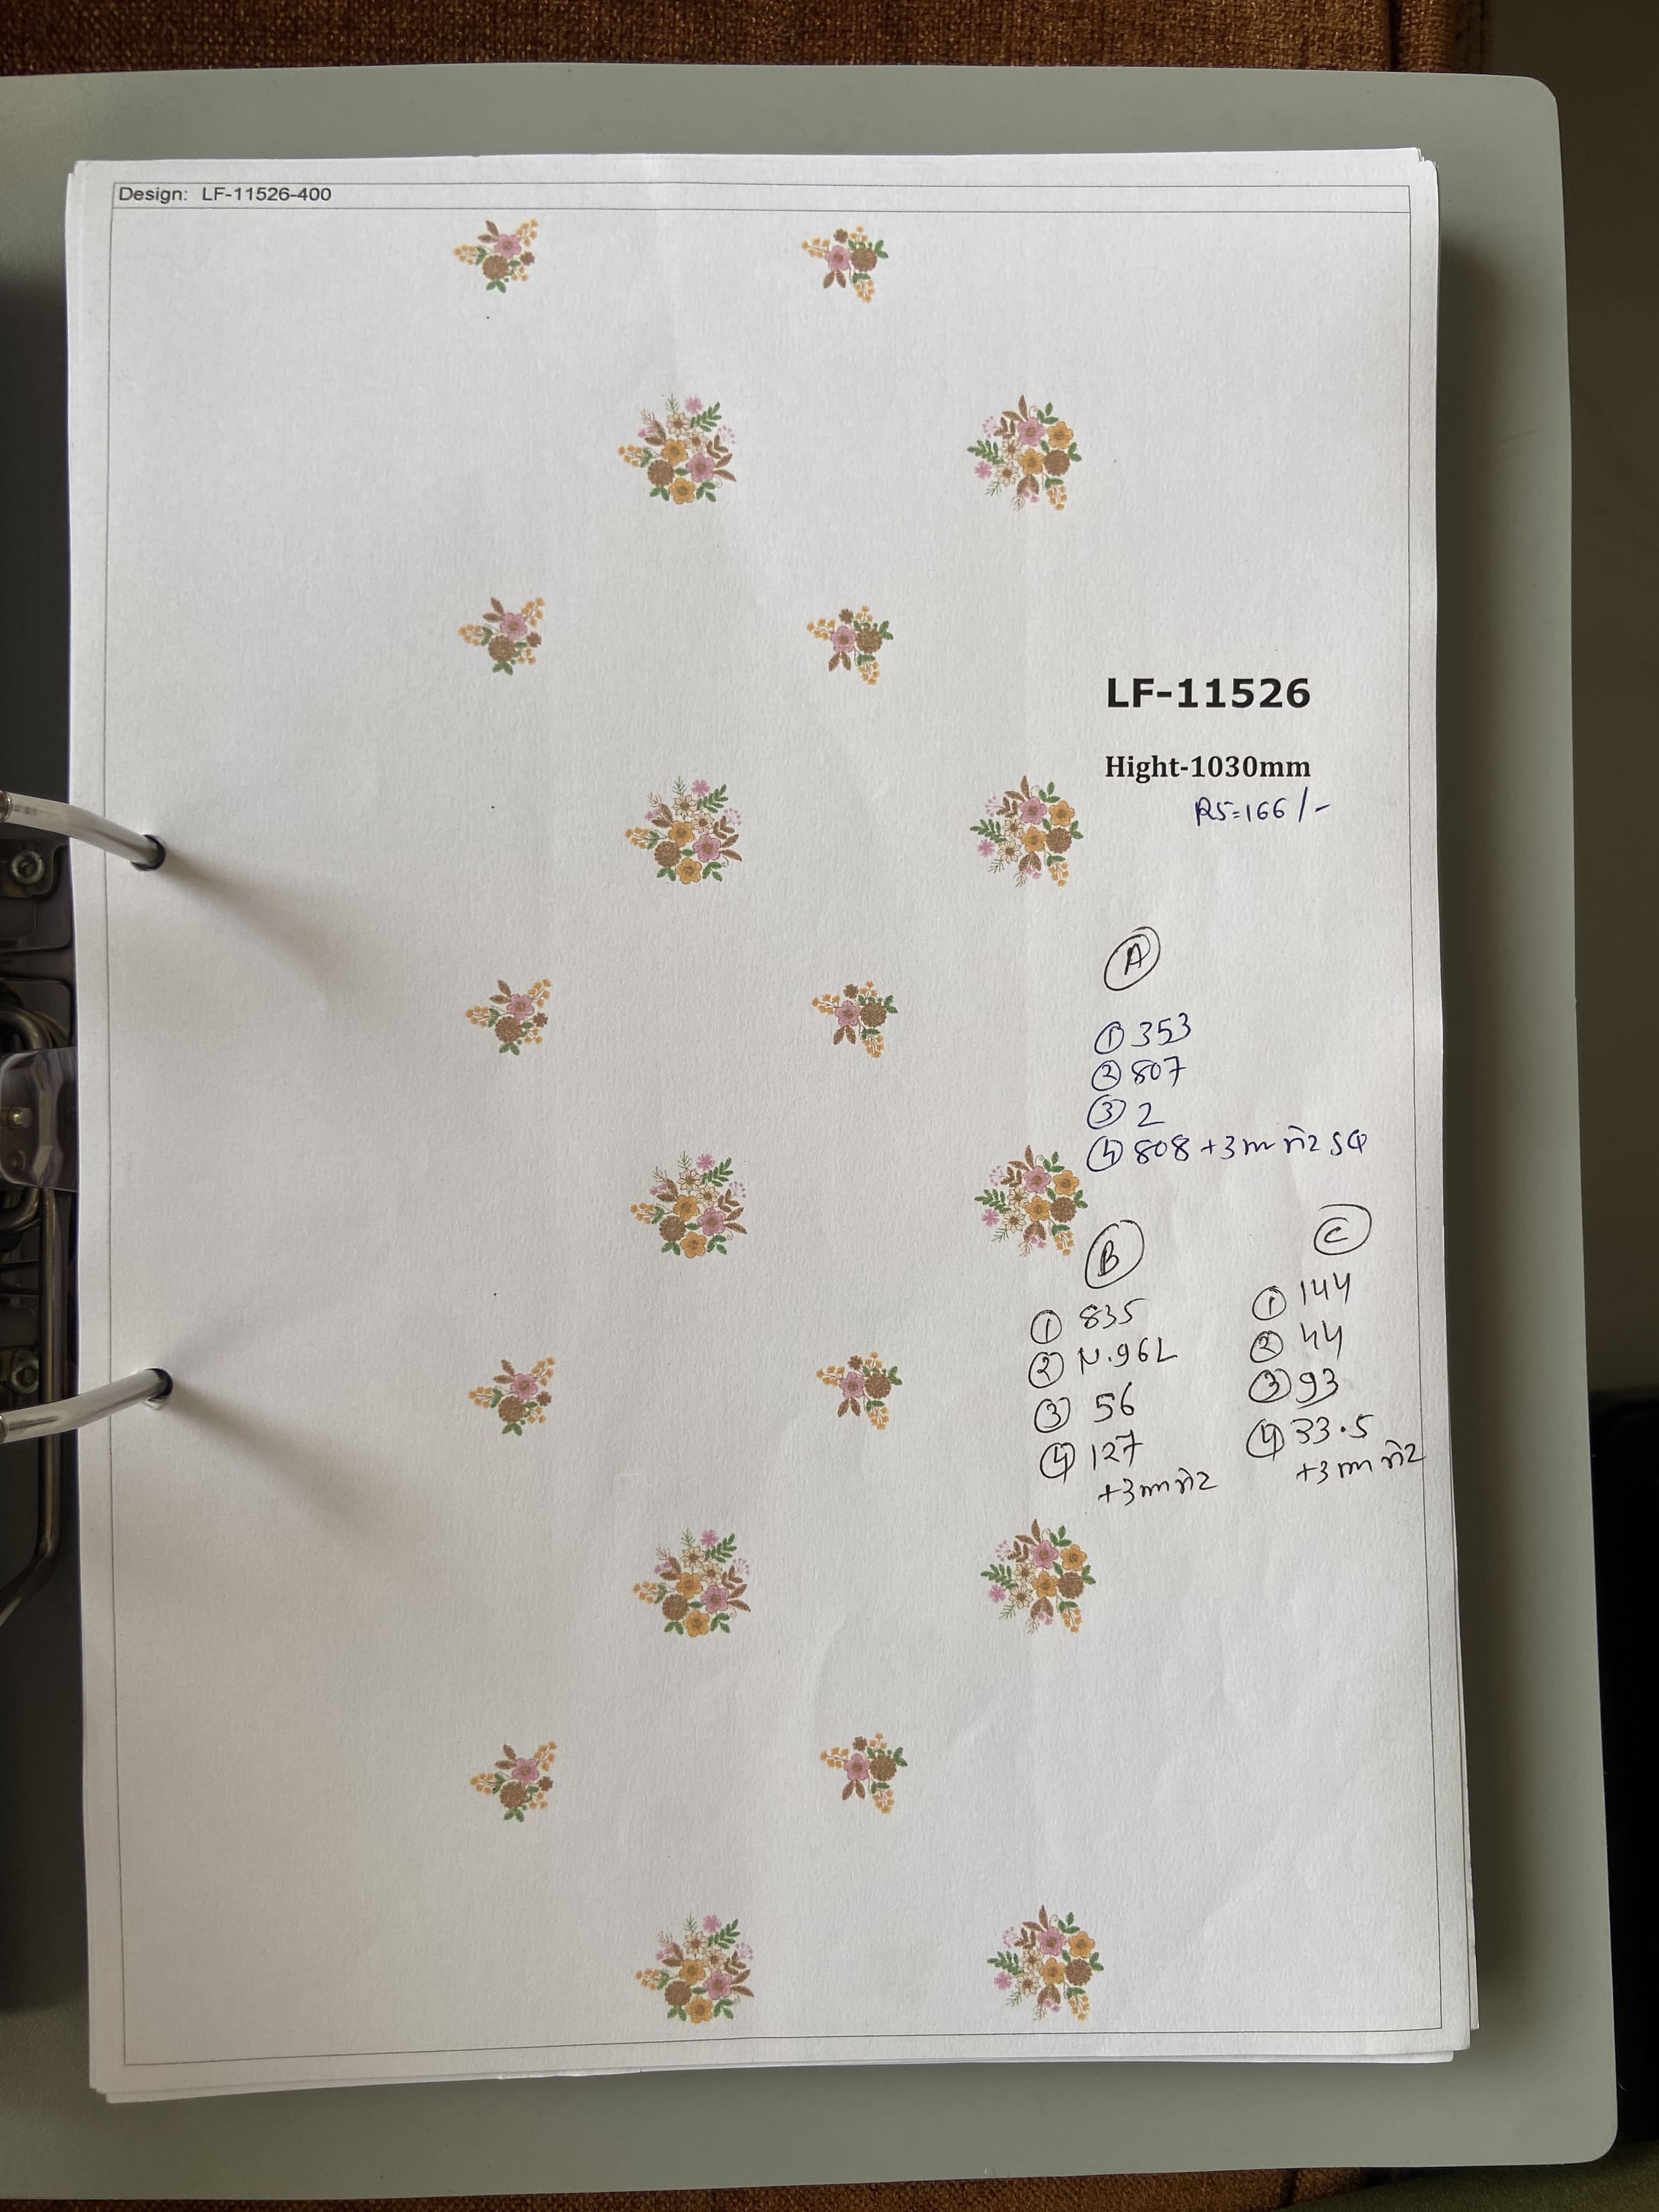 Design: LF-11526-400
LF-11526
Hight-1030mm
RS=166/-
A
① 353
② 807
③ 2
④ 808 +3m
B
① 835
② N.96L
③ 56
④ 127
+3m
C
① 144
② 44
③ 93
④ 33.5
+3m